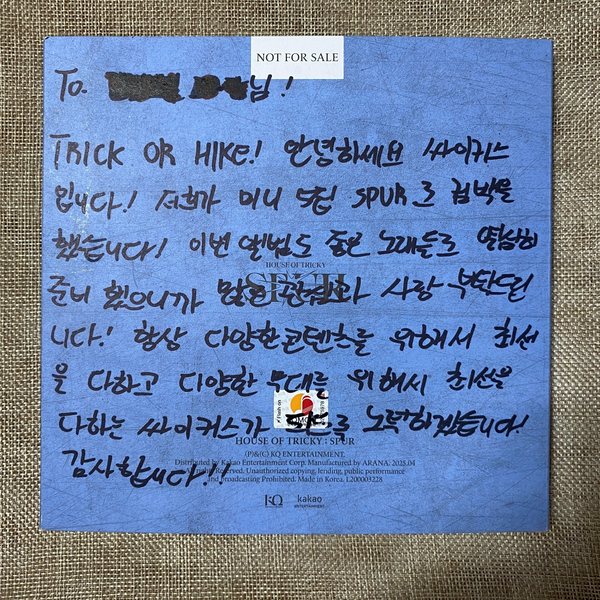 NOT FOR SALE
To. 님!
TRICK OR HIKE! 안녕하세요 싸이커스
입니다! 저희가 미니 SPUR로 컴백을
했습니다! 이번 앨범도 좋은 노래들로 열심히
HOUSE OF TRICKY
SPUR
준비 했으니까 많은 사랑 부탁드립
니다! 항상 다양한 콘텐츠를 위해서 최선
을 다하고 다양한 무대를 위해서 최선을
다하는 싸이커스가 되도록 노력하겠습니다!
HOUSE OF TRICKY : SPUR
감사합니다!
(P)&(C) KQ ENTERTAINMENT.
Distributed by Kakao Entertainment Corp. Manufactured by ARANA. 2025.04
All rights Reserved. Unauthorized copying, lending, public performance
and broadcasting Prohibited. Made in Korea. L200003228
KQ ENTERTAINMENT
kakao ENTERTAINMENT